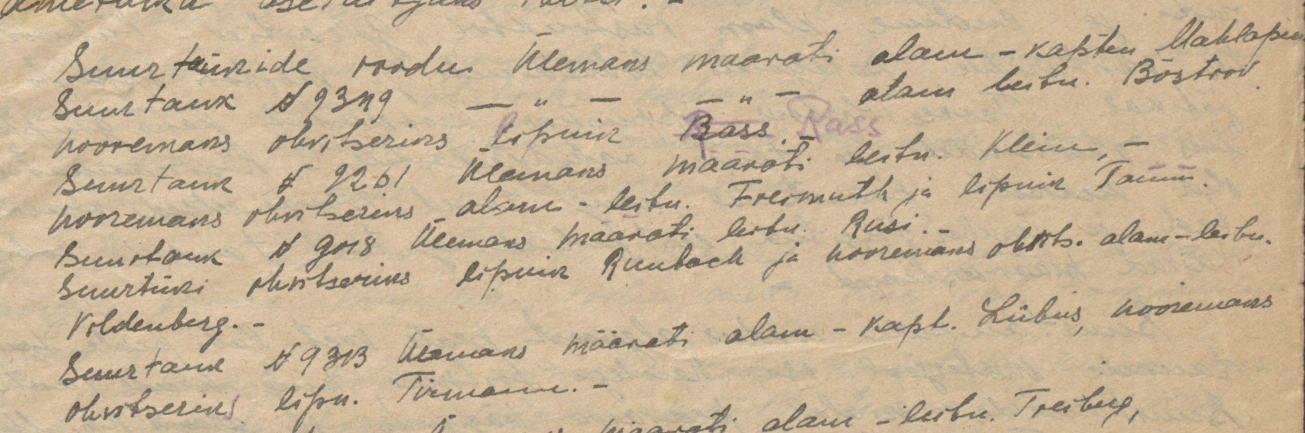 Suurtankide roodu Ülemaks määrati alam-kapten Mahlapuu
Suurtank № 9349 — " — — " — alam leitn. Bostrov
nooremaks ohvitseriks lipnik Bass. Rass
Suurtank № 9261 Ülemaks määrati leitn. Klein, -
nooremaks ohvitseriks alam-leitn. Freimuth ja lipnik Tamm.
Suurtank № 9018 Ülemaks määrati leitn. Rusi. -
Suurtüki ohvitseriks lipnik Rumbach ja nooremaks ohvits. alam-leitn.
Voldenberg. -
Suurtank № 9313 Ülemaks määrati alam-kapt. Lübus, nooremaks
ohvitseriks lipn. Tirmann. -
määrati alam-leitn. Treiberg,